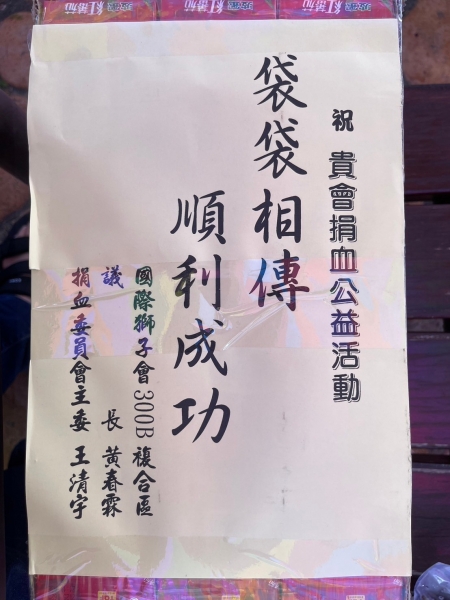 祝 貴會捐血公益活動
袋袋相傳
順利成功
國際獅子會300B複合區
議長 黃春霖
捐血委員會主委 王清宇
紅蕃茄
紅蕃茄
紅蕃茄